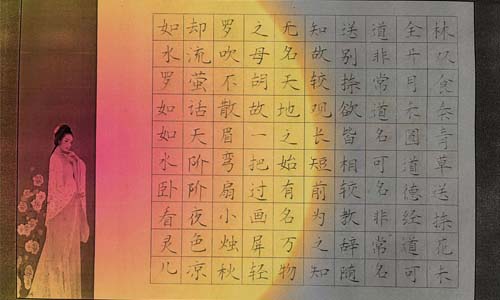 林以贪余青草送捺花卡
全斗月木圆道德经道可
道非常道名可名非常名
送别捺欲皆相较教辞随
知故较观长短前为之知
无名天地之始有名万物
之母胡故一把过画屏轻
罗吹不散眉弯扇小烛秋
却流萤话天阶阶夜色凉
如水罗如如水卧看灵儿